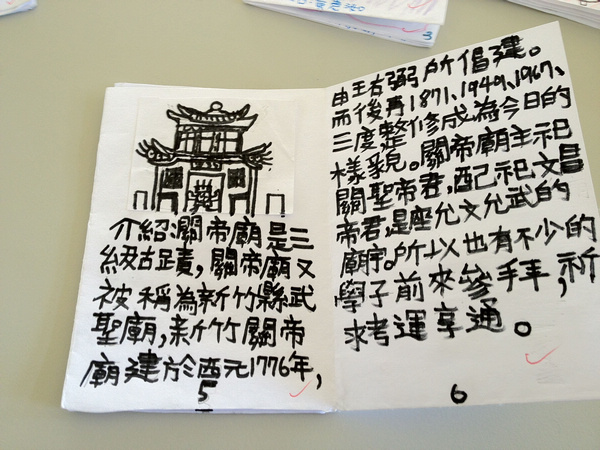 介紹:關帝廟是三
級古蹟,關帝廟又
被稱為新竹縣武
聖廟,新竹關帝
廟建於西元1776年,
5
由王右弼所倡建。
而後再1871、1949、1967、
三度整修成為今日的
樣貌。關帝廟主祀
關聖帝君,配祀文昌
帝君,是座允文允武的
廟宇。所以也有不少的
學子前來參拜,祈
求考運享通。
6
3